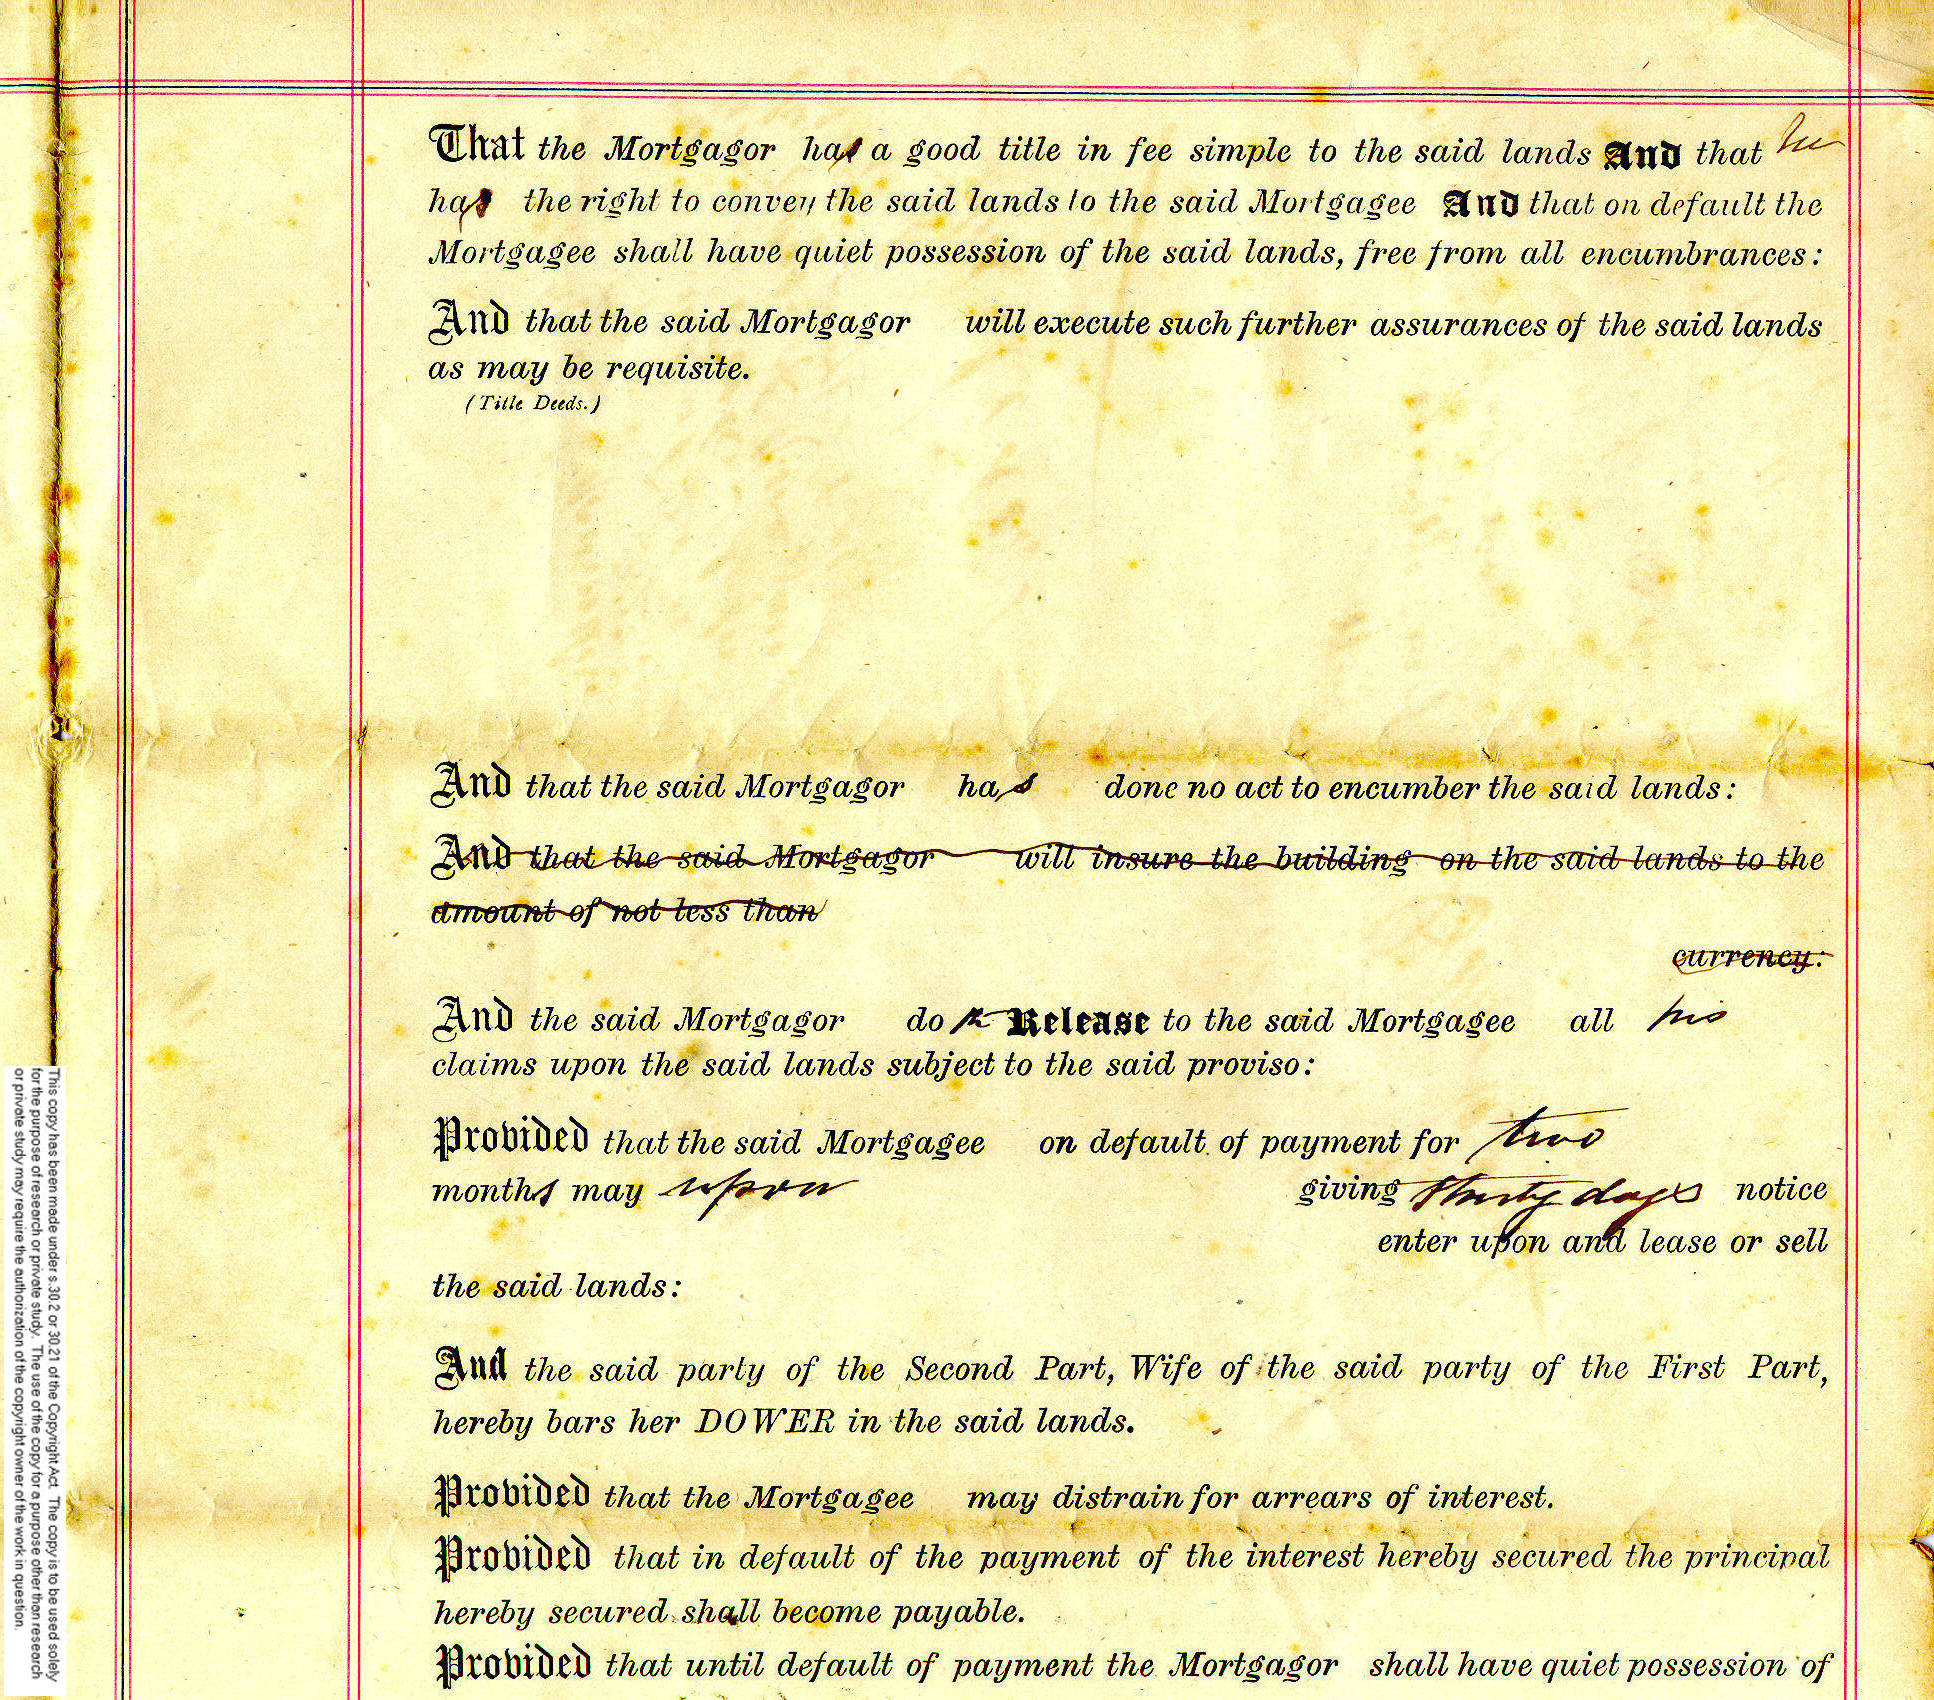 That the Mortgagor has a good title in fee simple to the said lands And that he
has the right to convey the said lands to the said Mortgagee And that on default the
Mortgagee shall have quiet possession of the said lands, free from all encumbrances:
And that the said Mortgagor will execute such further assurances of the said lands
as may be requisite.
(Title Deeds.)
And that the said Mortgagor has done no act to encumber the said lands:
And that the said Mortgagor will insure the building on the said lands to the
amount of not less than
currency:
And the said Mortgagor do th Release to the said Mortgagee all his
claims upon the said lands subject to the said proviso:
Provided that the said Mortgagee on default of payment for two
months may upon giving thirty days notice
enter upon and lease or sell
the said lands:
And the said party of the Second Part, Wife of the said party of the First Part,
hereby bars her DOWER in the said lands.
Provided that the Mortgagee may distrain for arrears of interest.
Provided that in default of the payment of the interest hereby secured the principal
hereby secured shall become payable.
Provided that until default of payment the Mortgagor shall have quiet possession of
This copy has been made under s.30.2 or 30.21 of the Copyright Act. The copy is to be used solely
for the purpose of research or private study. The use of the copy for a purpose other than research
or private study may require the authorization of the copyright owner of the work in question.